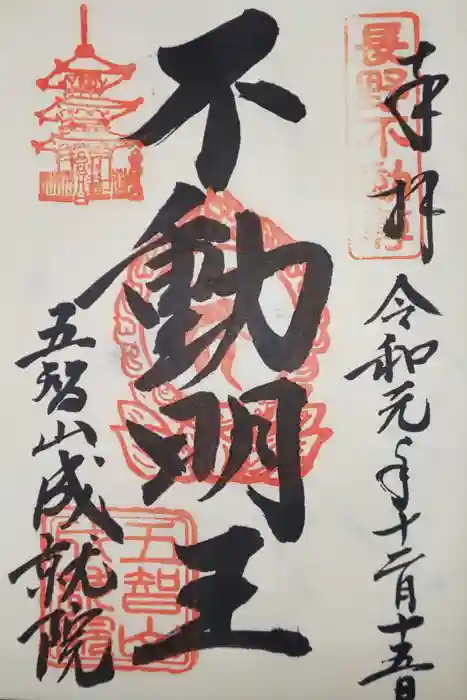 奉拝
長野不動尊
令和元年十二月十五日
不動明王
五智山成就院
五智山